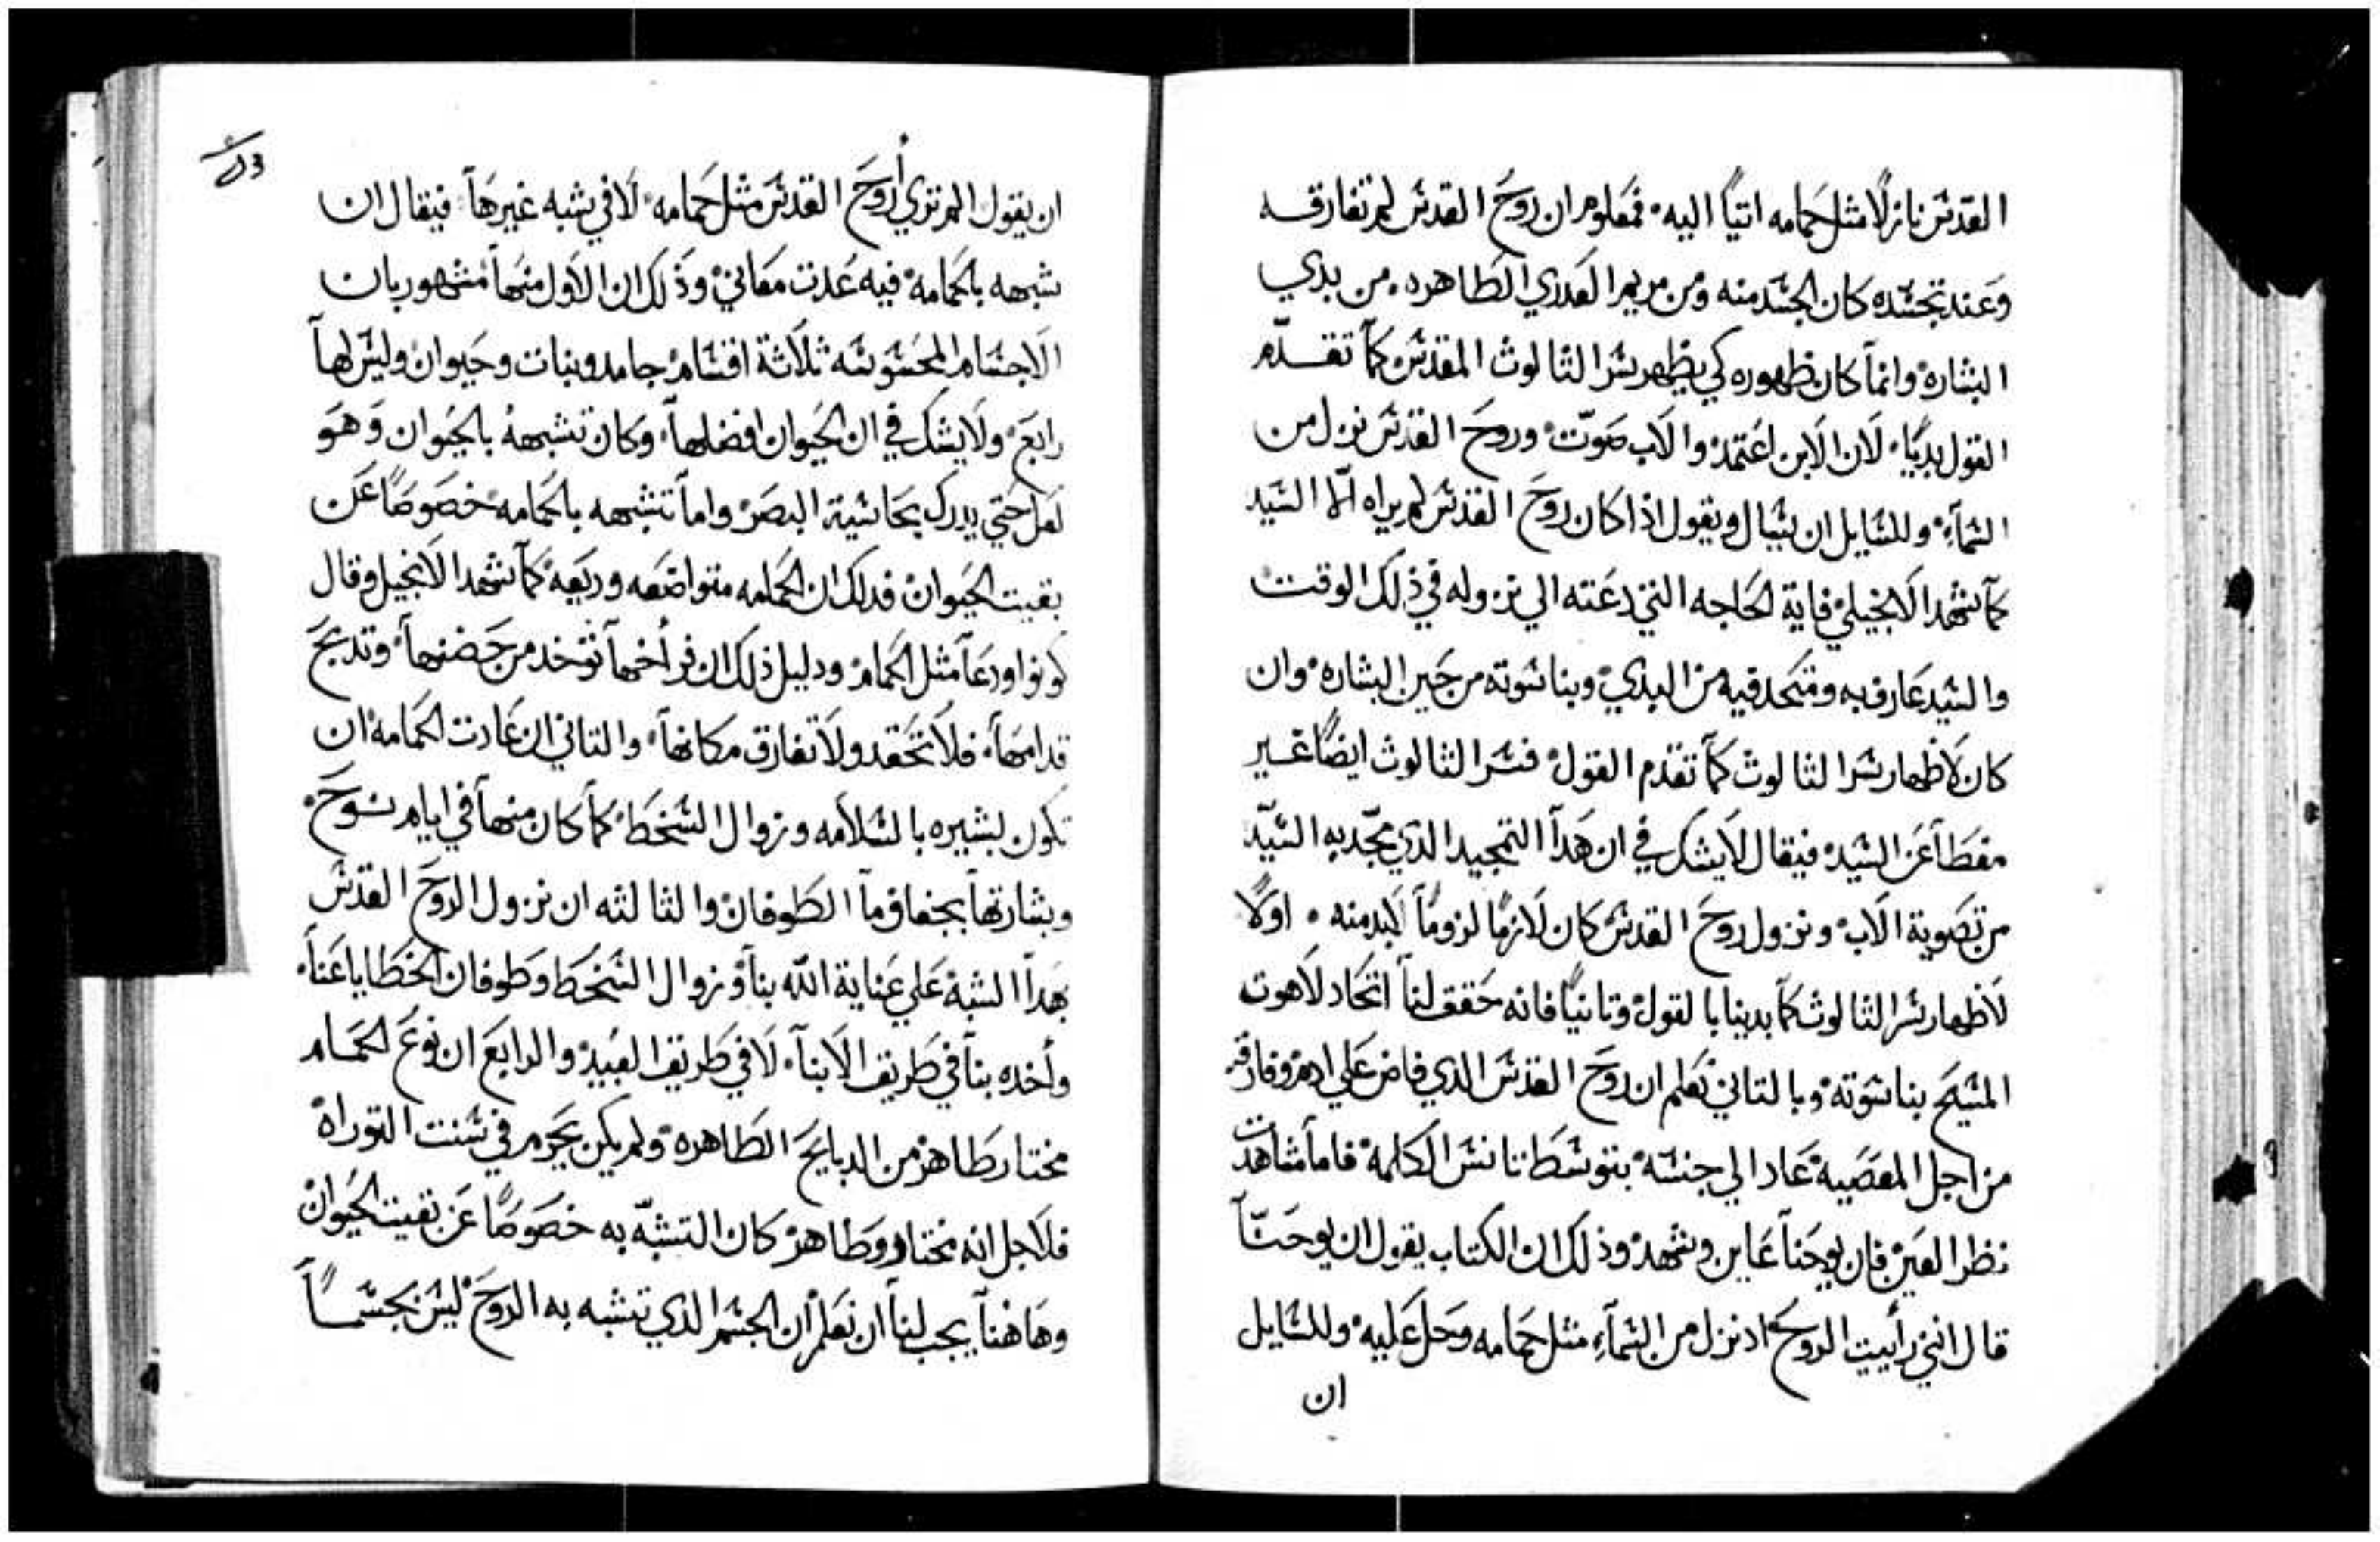 القدس نازلًا مثل حمامه اتيًا اليه فمعلوم ان روح القدس لم تفارقه
وعند تجسده كان الجسد منه ومن مريم العدري الطاهره من بدي
البشاره وانما كان ظهوره كي يظهر سر الثالوث المقدس كما تقدم
القول بديًا لان الابن اعتمد والاب صوت وروح القدس نزل من
السمآء وللسايل ان يسال ويقول اذا كان روح القدس لم يراه الا السيد
كما شهد الانجيلي فاية الحاجه التي دعته الي نزوله في ذلك الوقت
والسيد عارف به ومتحد فيه من البدي وبناسوته من حين البشاره وان
كان لاظهار سر الثالوث كما تقدم القول فسر الثالوث ايضًا غير
مغطا عن السيد فيقال لا يشك في ان هدا التمجيد الدي مجد به السيد
من تصوية الاب ونزول روح القدس كان لازمًا لزومًا لابد منه اولًا
لاظهار سر الثالوث كما بدينا بالقول وتانيًا فانه حقق لنا اتحاد لاهوت
المسيح بناسوته وبالتاني نعلم ان روح القدس الدي فاض علي ادم وفارقه
من اجل المعصيه عاد الي جنسه بتوسط تانس الكلمة فاما مشاهدت
نظر العين فان يوحنا عاين وشهد وذلك ان الكتاب يقول ان يوحنا
قال انني رأييت الروح اد نزل من السمآء مثل حمامه وحل عليه وللسايل
ان
ان يقول الم تري أروح القدس مثل حمامه لا في شبه غيرها فيقال ان
شبهه بالحمامه فيه عدت معاني وذلك ان الاول منها مشهور بان
الاجسام المحسوسه ثلاثة اقسام جامد ونبات وحيوان وليس لها
رابع ولا يشك في ان الحيوان افضلها وكان تشبهه بالحيوان وهو
لعل حتي يدرك بحاسية البصر واما تشبهه بالحمامه خصوصًا عن
بقيت الحيوان فدلك ان الحمامه متواضعه وريعه كما شهد الانجيل وقال
كونوا ودعا مثل الحمام ودليل ذلك ان فرأخها توخد من حضنها وتدبح
قدامها فلا تحقد ولا تفارق مكانها والتاني ان عادت الحمامه ان
تكون بشيره بالسلامه وزوال السخط كما كان منها في ايام نوح
وبشارتها بجفاف ما الطوفان والثالثه ان نزول الروح القدس
بهدا الشبه علي عناية الله بنا وزوال السخط وطوفان الخطايا عنا
وأخده بنا في طريق الابنا لا في طريق العبيد والرابع ان نوع الحمام
مختار طاهر من الدبايح الطاهره ولم يكن يحرم في سنت التوراه
فلاجل انه مختار وطاهر كان التشبه به خصوصًا عن بقيت الحيوان
وهاهنا يجب لنا ان نعلم ان الجسم الذي تشبه به الروح ليس بجسمًا